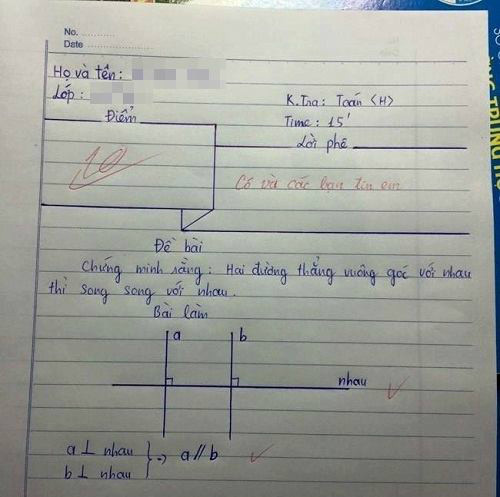 No. ............
Date ............
Họ và tên:
Lớp:
K.Tra: Toán <H>
Time: 15'
Điểm
Lời phê
10
Cô và các bạn tin em
Đề bài
Chứng minh rằng: Hai đường thẳng vuông góc với nhau
thì song song với nhau.
Bài làm
a b
nhau
a ⊥ nhau
b ⊥ nhau } => a // b